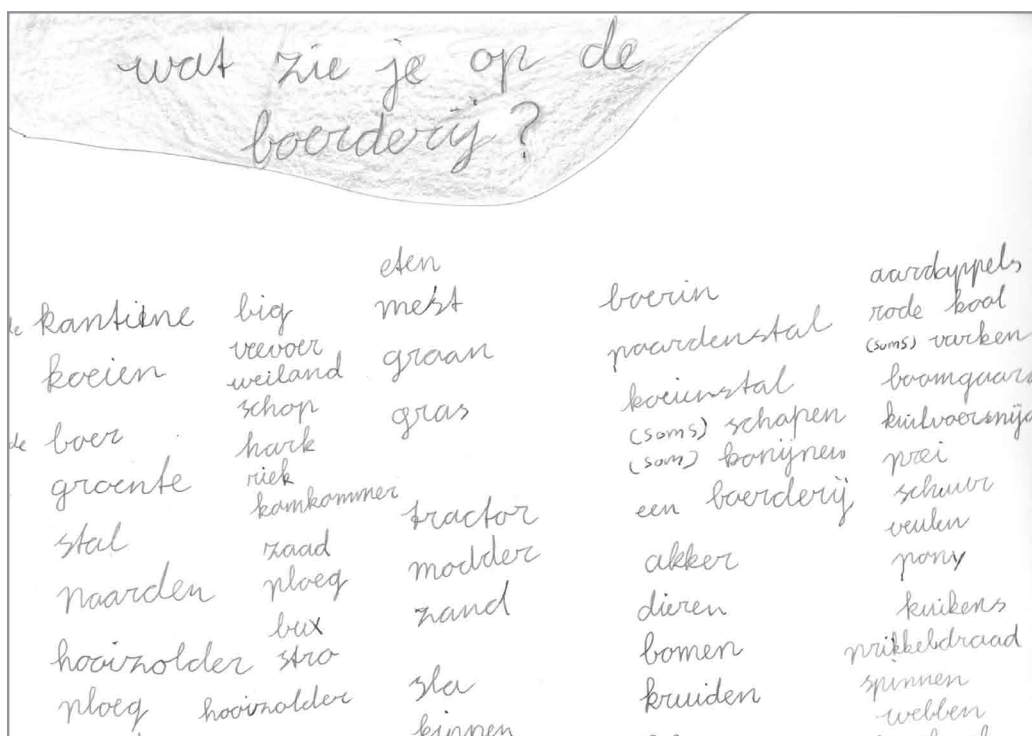 wat zie je op de
boerderij?
de kantiene
koeien
de boer
groente
stal
paarden
hooizolder
ploeg
big
veevoer
weiland
schop
hark
riek
komkommer
zaad
ploeg
bux
stro
hooizolder
eten
mest
graan
gras
tractor
modder
zand
sla
kippen
boerin
paardenstal
koeienstal
(soms) schapen
(som) konijnen
een boerderij
akker
dieren
bomen
kruiden
aardappels
rode kool
(soms) varken
boomgaard
kuilvoersnijd
prei
schuur
veulen
pony
kuikens
prikkeldraad
spinnen
webben